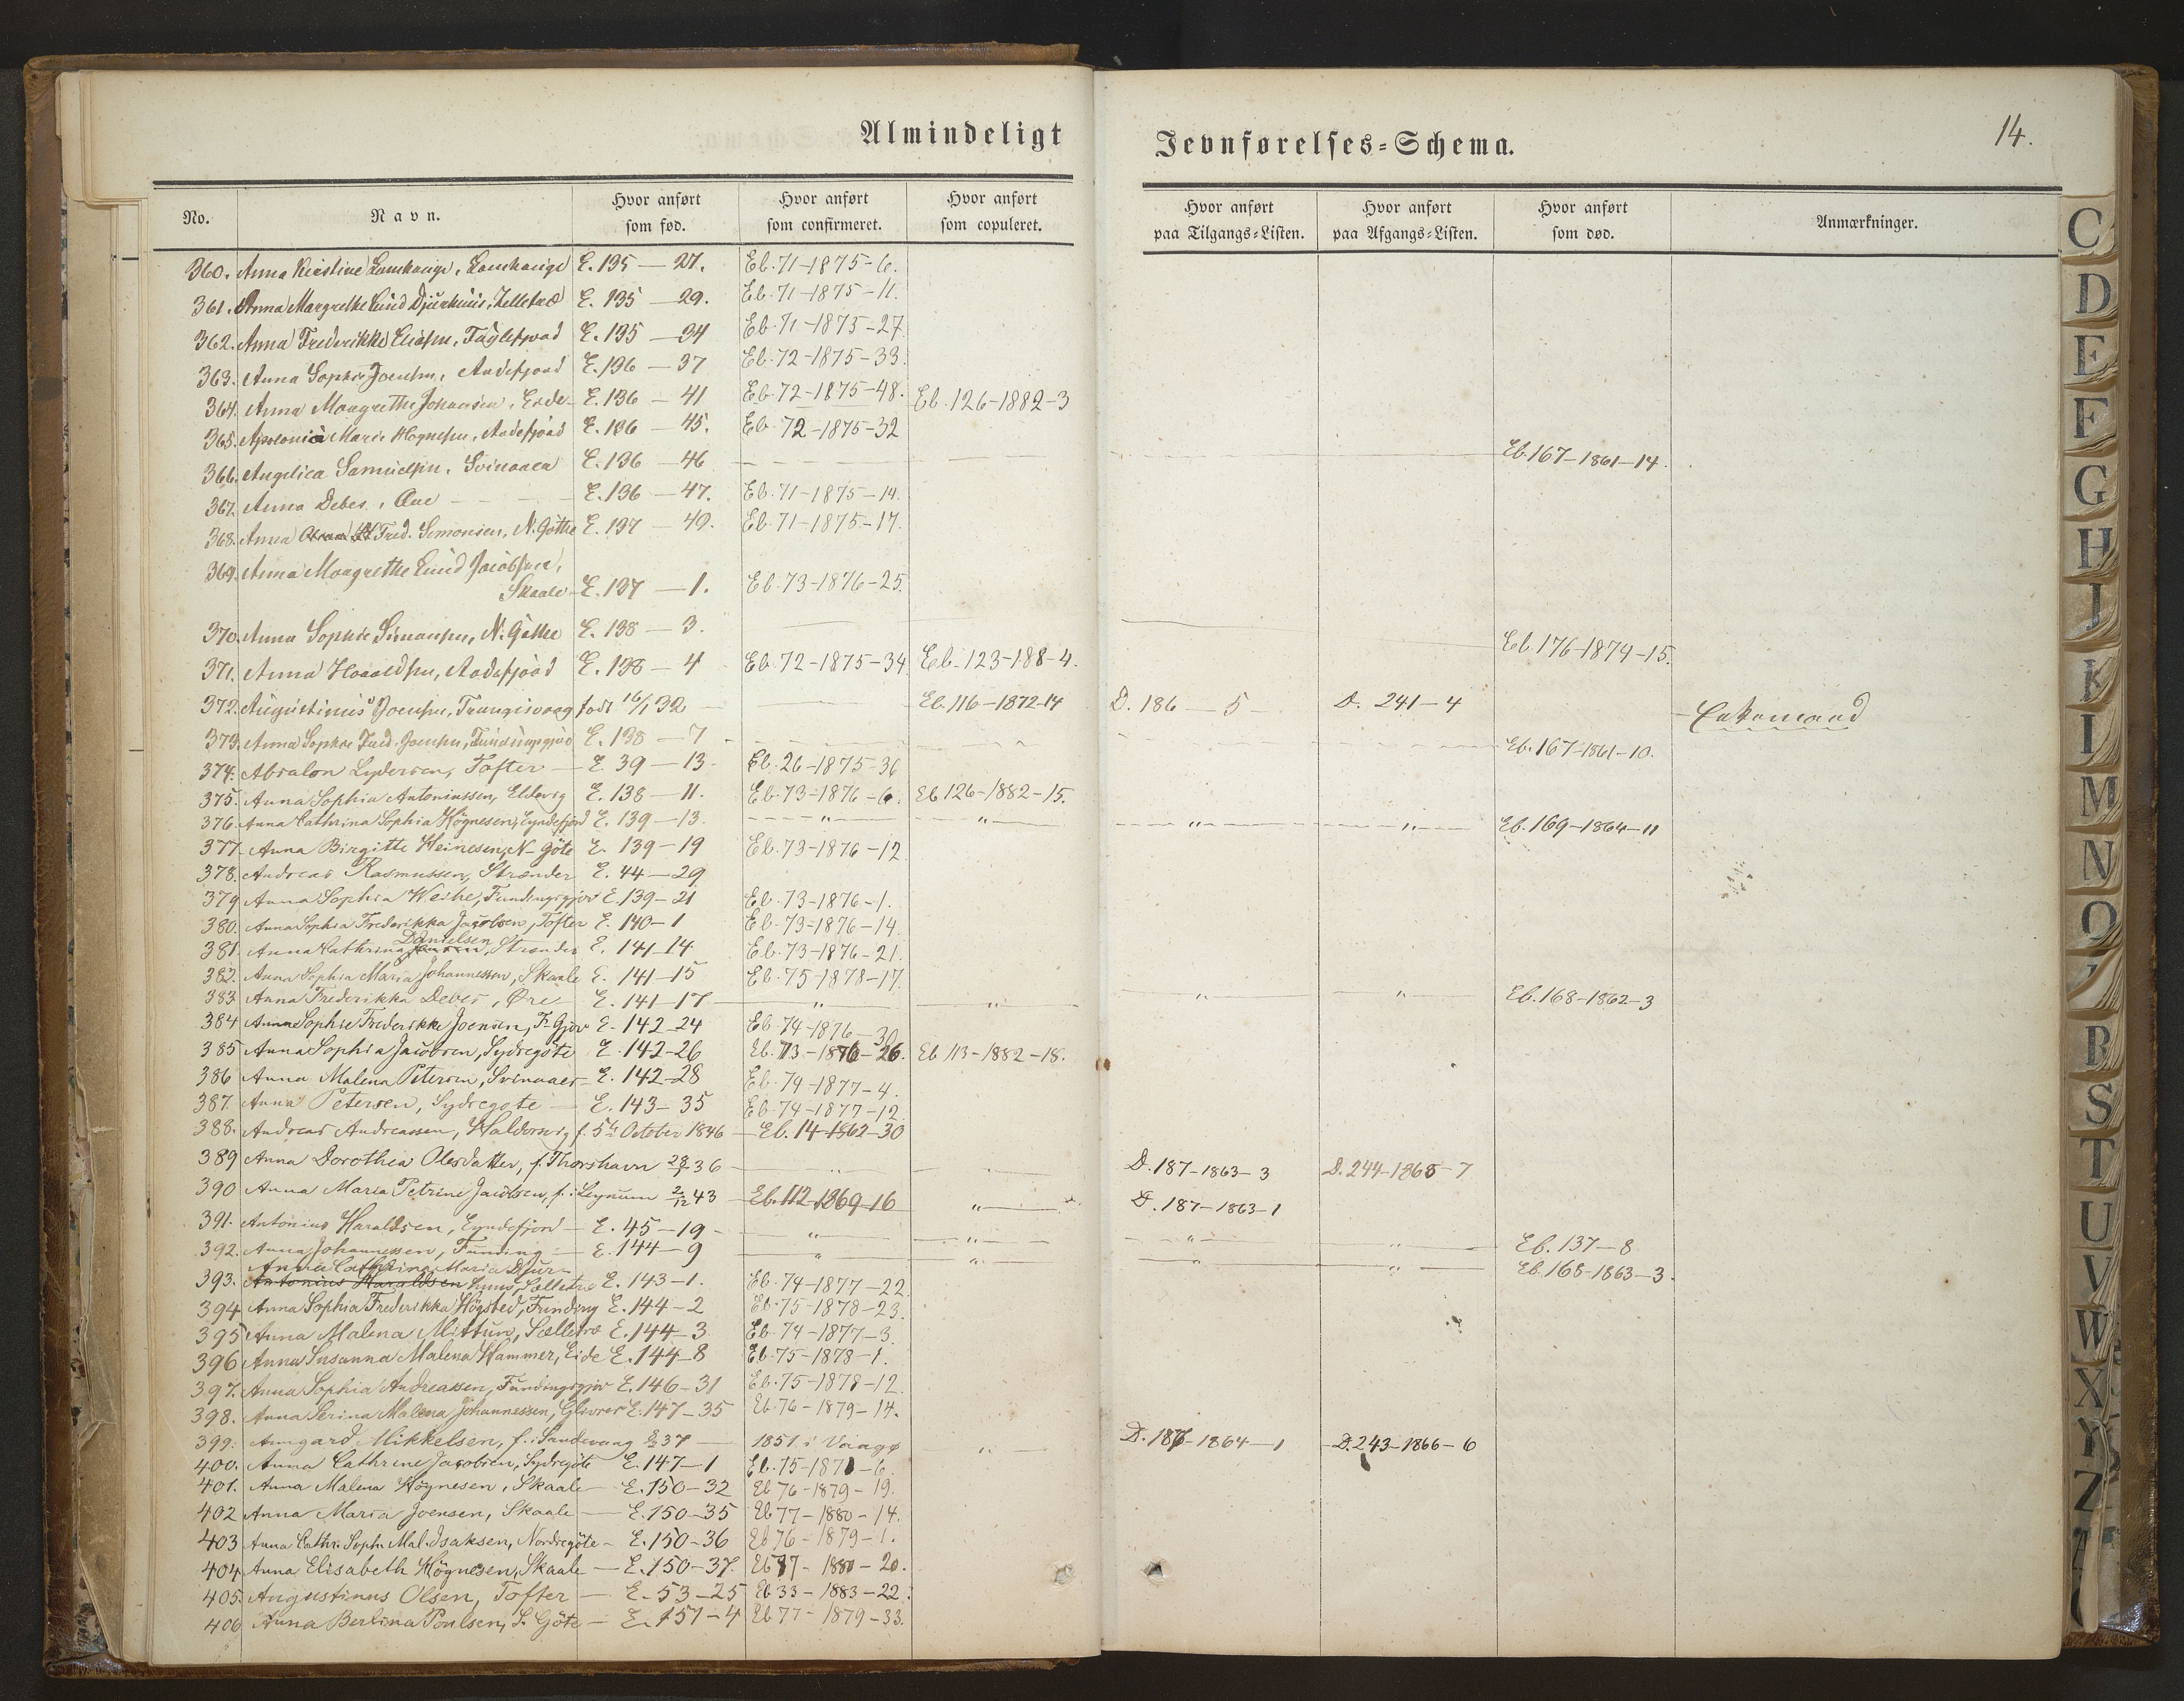 Almindeligt Jevnførelses-Schema.
14.
No. Navn. Hvor anført som fød. Hvor anført som confirmeret. Hvor anført som copuleret. Hvor anført paa Tilgangs-Listen. Hvor anført paa Afgangs-Listen. Hvor anført som død. Anmærkninger.
360. Anna Kirstine Lamhauge, Lamhauge E. 135 — 27. Eb. 71-1875-6.
361. Anna Margrethe Lund Djurhuus, Selletræ E. 135 — 29. Eb. 71-1875-11.
362. Anna Frederikke E. 135 — 34 Eb. 71-1875-27
363. Anna Sophie Joensen, Andefjord E. 136 — 37 Eb. 72-1875-33.
364. Anna Margrethe Johansen, Eide E. 136 — 41 Eb. 72-1875-48. Eb. 126-1882-3
365. Apolonia Marie Hognesen, Andefjord E. 136 — 45. Eb 72-1875-32
366. Angelica Samuelsen, Svinaaer E. 136 — 46 Eb. 167-1861-14.
367. Anna Debes, Øre E. 136 — 47. Eb. 71-1875-14.
368. Anna Fred. Simonsen, N. Gøthe E. 137 — 49. Eb. 71-1875-17.
369. Anna Margrethe Lund Jacobsen,
Skaale E. 137 — 1. Eb. 73-1876-25.
370. Anna Sophie Simonsen, N. Gøthe E. 138 — 3. Eb. 176-1874-15.
371. Anna Haraldsen, Andefjord E. 138 — 4 Eb. 72-1875-34 Eb. 123-188-4.
372. Augustinus Joensen, Trangisvaag født 16/1 32 Eb. 116-1872-14 D. 186 — 5 D. 241-4 Enkemand
373. Anna Sophie Fred. Joensen, Fundingsgjov E. 138 — 7 Eb. 167-1861-10.
374. Absalon Lydersen, Tofter E. 39 — 13 Eb. 26-1875-36
375. Anna Sophia Antoniussen, Eldevig E. 138 — 11. Eb. 73-1876-6. Eb 126-1882-15.
376. Anna Cathrina Sophia Högnesen, Eyndefjord E. 139-13. — " — — " — — " — — " — Eb. 169-1864-11
377. Anna Birgitte Heinesen, N. Göte E. 139-19 Eb. 73-1876-12
378. Andreas Rasmussen, Strænder E. 44-29
379 Anna Sophia Weihe, Fundingsgjov E. 139-21 Eb. 73-1876-1.
380. Anna Sophia Frederikka Jacobsen, Tofter E. 140-1 Eb. 73-1876-14.
Danielsen
381. Anna Cathrina, Strænder E. 141-14 Eb. 73-1876-21.
382. Anna Sophia Maria Johannessen, Skaale E. 141-15 Eb. 75-1878-17.
383 Anna Frederikka Debes, Øre E. 141-17 — " — — " — — " — — " — Eb. 168-1862-3
384 Anna Sophie Frederikke Joensen, F. Gjov E. 142-24 Eb. 74-1876-30
385 Anna Sophia Jacobsen, Sydregöte E. 142-26 Eb. 73-1876-26. Eb 113-1882-18.
386 Anna Malena Petersen, Svinaaer E. 142-28 Eb. 74-1877-4.
387. Anna Petersen, Sydregote E. 143-35 Eb. 74-1877-12
388. Andreas Andreassen, Haldersvig f. 5te October 1846 Eb. 14-1862-30
389 Anna Dorothea Olesdatter, f. Thorshavn 36 D. 187-1863-3 D. 244-1868-7
390 Anna Maria Petrine Jacobsen, f. i Leynum 2/12 43 Eb. 112-1869-16 — " — D. 187-1863-1
391. Antonius Haraldsen, Eyndefjord E. 45-19 — " — — " — — " — — " — Eb. 137-8
392. Anna Johannessen, Funding E. 144-9 — " — — " — — " — — " — Eb. 168-1863-3.
Anna Cathrina Maria Djur-
393. Antonius Haraldsen huus, Selletræ E. 143-1. Eb. 74-1877-22
394 Anna Sophia Frederikka Högsted, Funding E. 144-2 Eb. 75-1878-23.
395 Anna Malena Mittun, Sælletræ E. 144-3 Eb. 74-1877-3.
396 Anna Susanna Malena Hammer, Eide E. 144-8 Eb. 75-1878-1.
397. Anna Sophia Andreassen, Fundingsgjov E. 146-31 Eb. 75-1878-12
398. Anna Serina Malena Johannessen, Glivrer E. 147-35 Eb. 76-1879-14.
399. Armgard Mikkelsen, f. i Sandevaag 37 1851 i Vaagø — " — D. 187-1864-1 D. 243-1866-6
400. Anna Cathrine Jacobsen, Sydregöte E. 147-1 Eb. 75-1878-6.
401. Anna Malena Högnesen, Skaale E. 150-32 Eb 76-1879-19.
402 Anna Maria Joensen, Skaale E. 150-35 Eb 77-1880-14.
403 Anna Cathr. Soph. Mal. Isaksen, Nordregöte E. 150-36 Eb 76-1879-1.
404 Anna Elisabeth Högnesen, Skaale E. 150-37. Eb 77-1880-20.
405. Augustinus Olsen, Tofter E. 53-25 Eb 33-1883-22.
406 Anna Berlina Poulsen, S. Göte E. 151-4 Eb 77-1879-33.
C
D
E
F
G
H
J
K
L
M
N
O
B
S
T
U
V
W
X
Y
Z